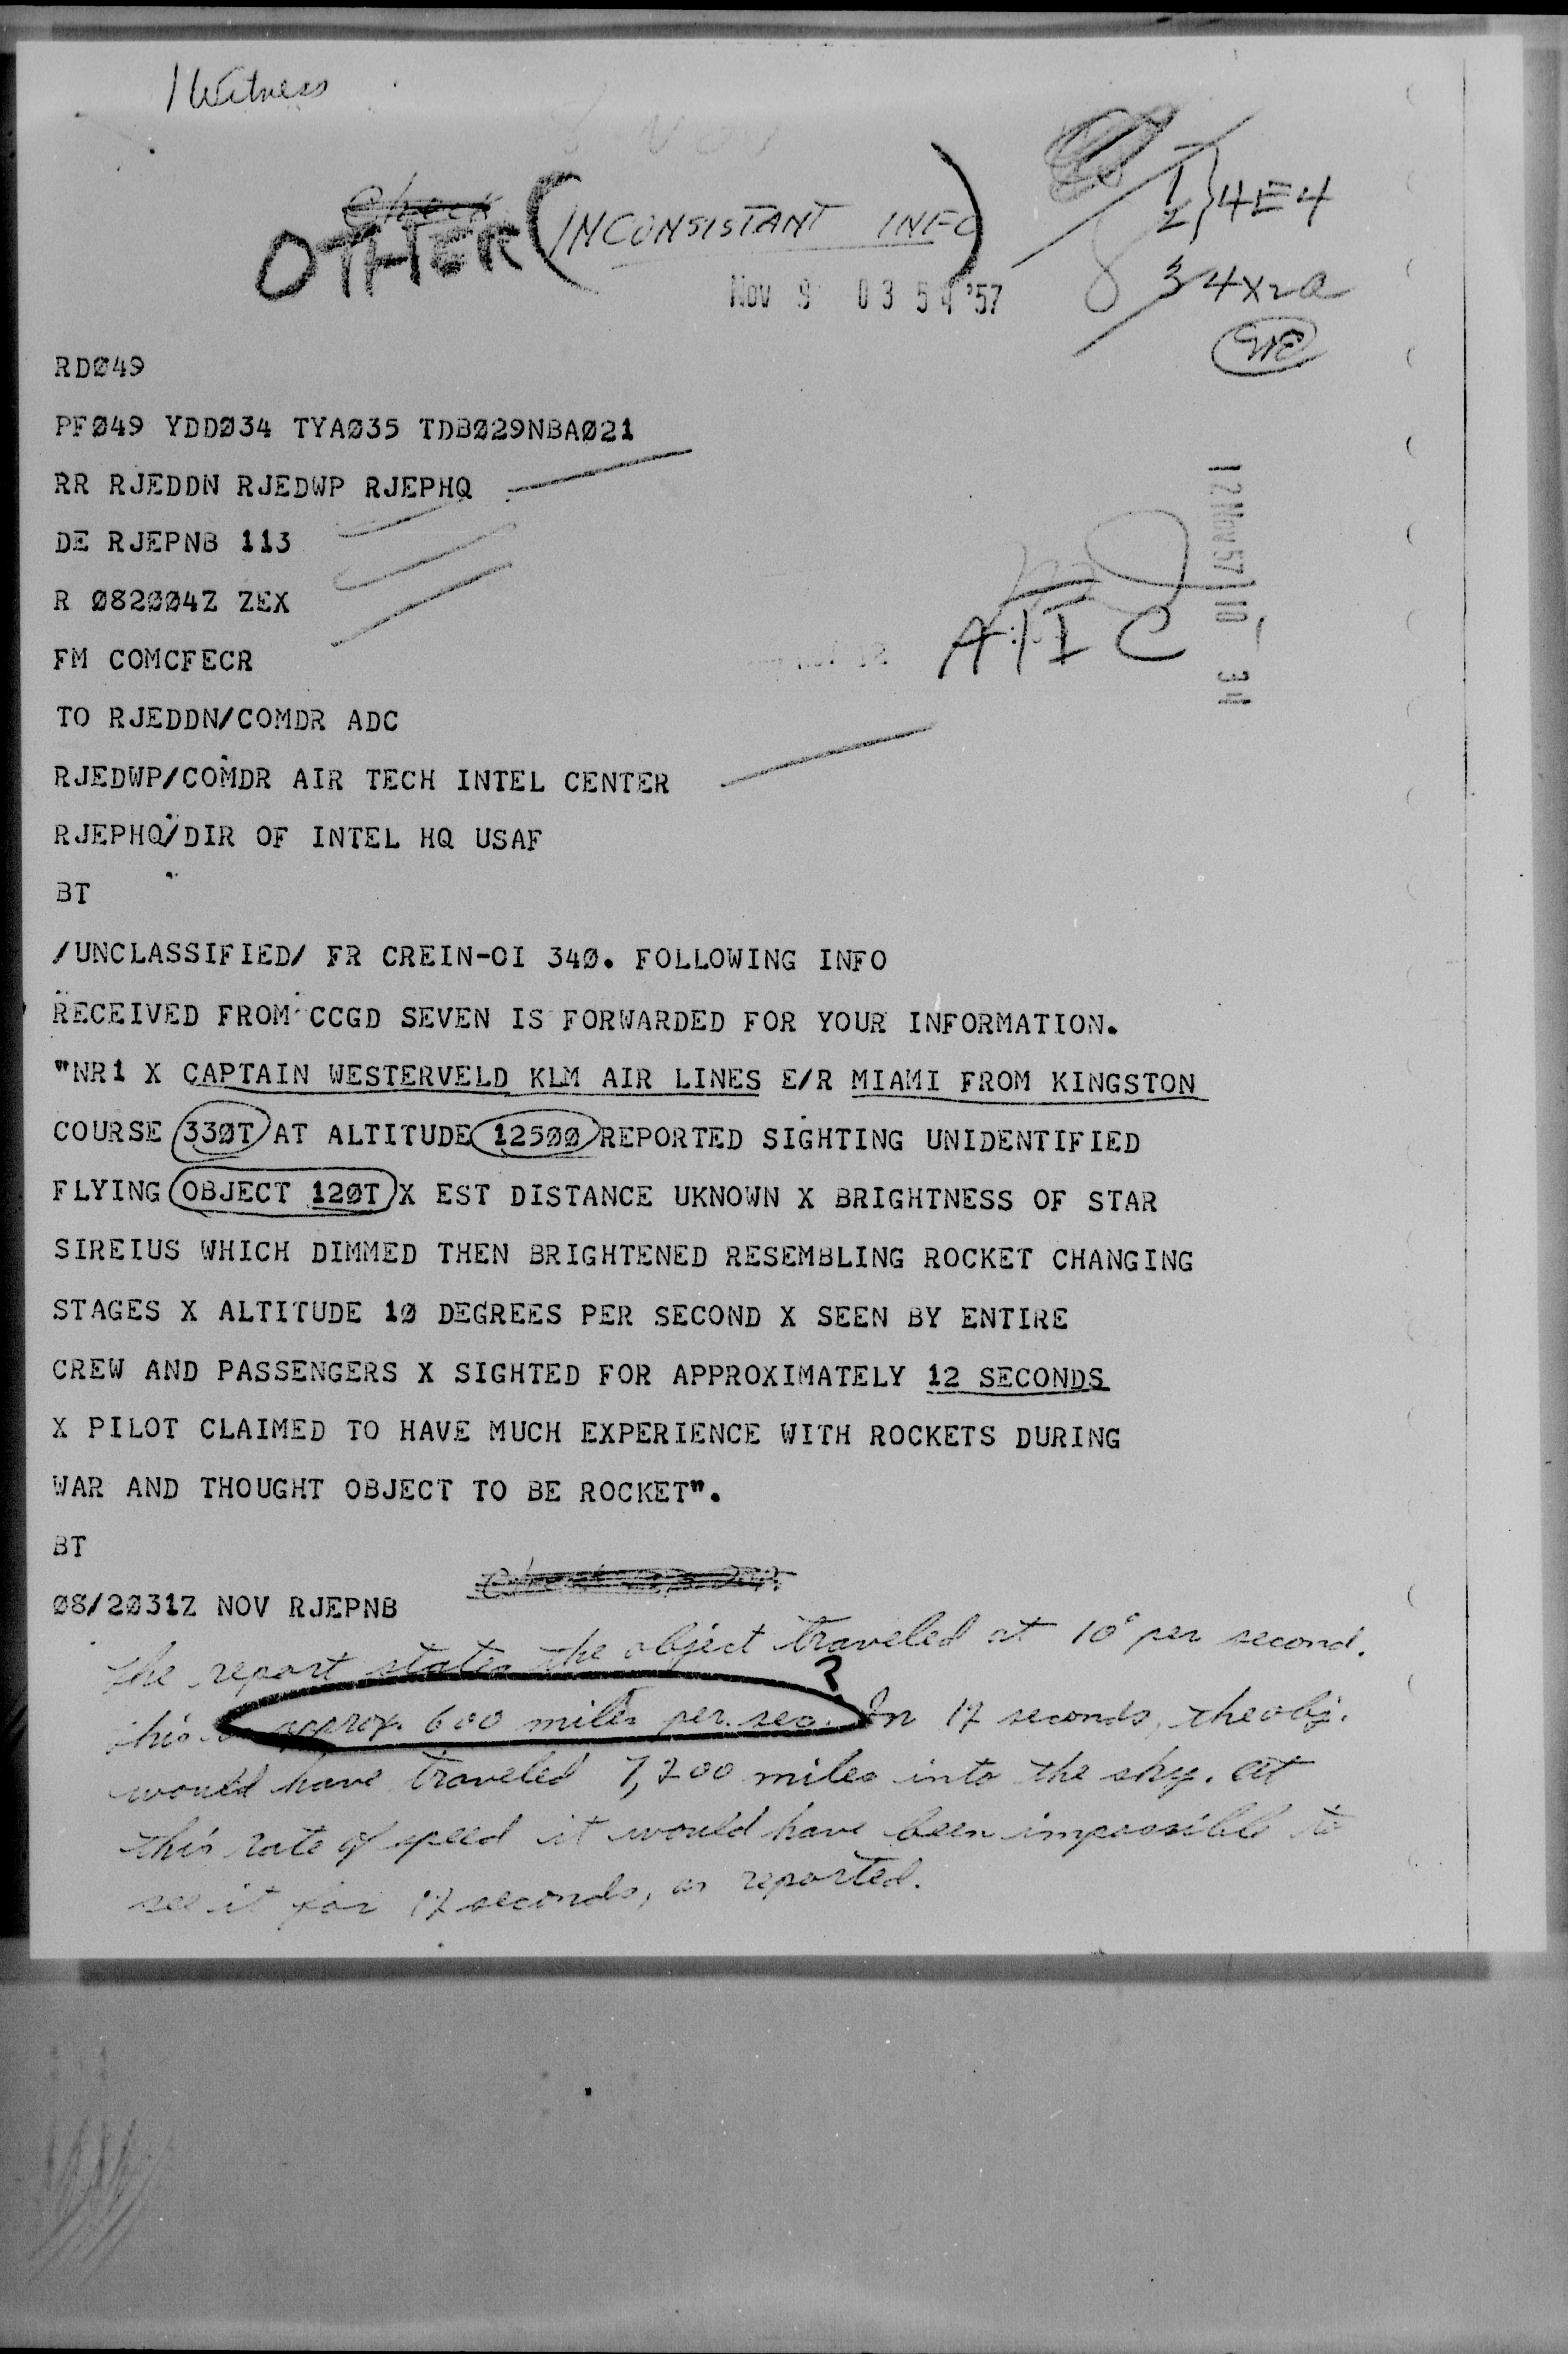 1 Witness
OTHER (INCONSISTANT INFO)
1
2 } 4E4
3 4X2a
Nov 9 03 54 '57
RDØ49
PFØ49 YDDØ34 TYAØ35 TDBØ29NBAØ21
RR RJEDDN RJEDWP RJEPHQ
DE RJEPNB 113
R Ø82ØØ4Z ZEX
FM COMCFECR
12 NOV 57 10 34
AIIC
TO RJEDDN/COMDR ADC
RJEDWP/COMDR AIR TECH INTEL CENTER
RJEPHQ/DIR OF INTEL HQ USAF
BT
/UNCLASSIFIED/ FR CREIN-OI 34Ø. FOLLOWING INFO
RECEIVED FROM CCGD SEVEN IS FORWARDED FOR YOUR INFORMATION.
"NR1 X CAPTAIN WESTERVELD KLM AIR LINES E/R MIAMI FROM KINGSTON
COURSE 33ØT AT ALTITUDE 125ØØ REPORTED SIGHTING UNIDENTIFIED
FLYING OBJECT 12ØT X EST DISTANCE UKNOWN X BRIGHTNESS OF STAR
SIREIUS WHICH DIMMED THEN BRIGHTENED RESEMBLING ROCKET CHANGING
STAGES X ALTITUDE 1Ø DEGREES PER SECOND X SEEN BY ENTIRE
CREW AND PASSENGERS X SIGHTED FOR APPROXIMATELY 12 SECONDS
X PILOT CLAIMED TO HAVE MUCH EXPERIENCE WITH ROCKETS DURING
WAR AND THOUGHT OBJECT TO BE ROCKET".
BT
Ø8/2Ø31Z NOV RJEPNB
The report states the object traveled at 10° per second.
?
This is approx. 600 miles per sec. In 12 seconds, the obj.
would have traveled 7,200 miles into the sky. At
this rate of speed it would have been impossible to
see it for 12 seconds, as reported.